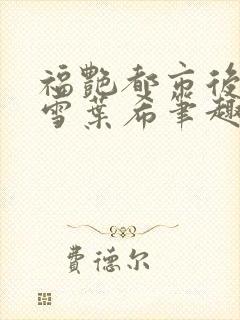 福艷都市後
雪葉希筆趣
費德尔